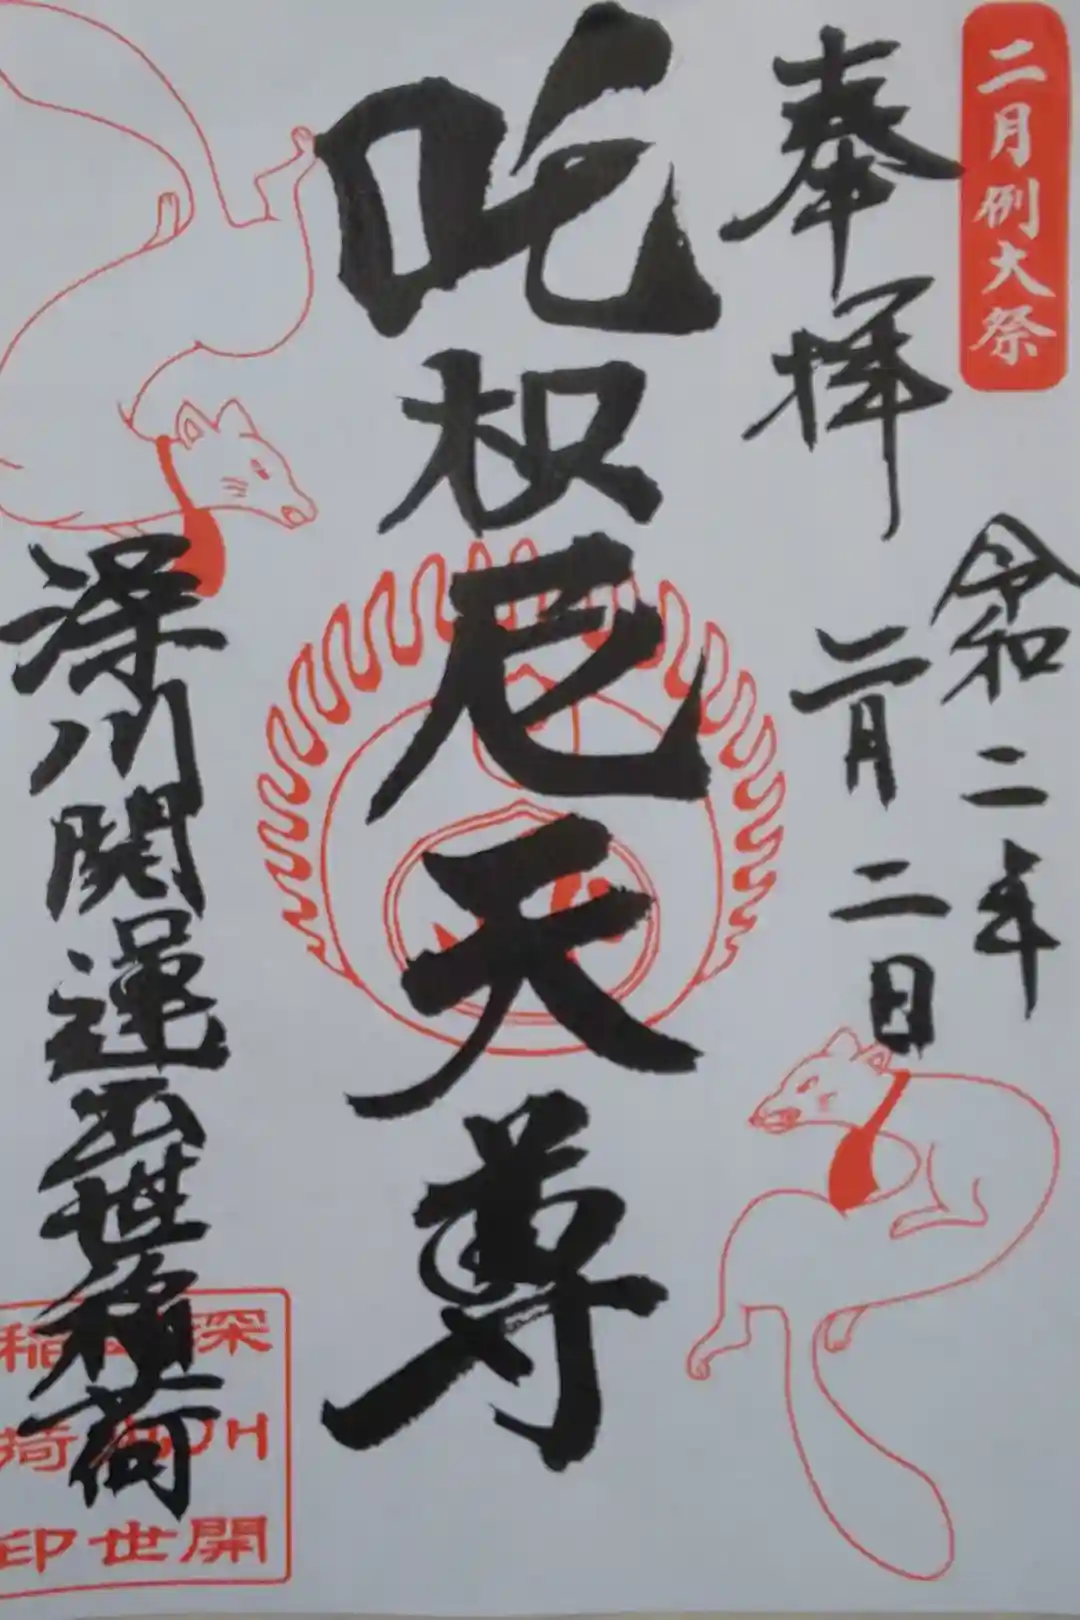 二月例大祭
奉拝
令和二年
二月二日
吒枳尼天尊
深川開運出世稲荷
深川開
世
稲荷印